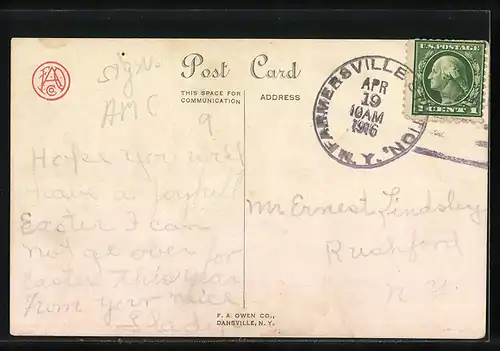 Post Card
THIS SPACE FOR
COMMUNICATION
ADDRESS
FARMERSVILLE STATION, N.Y.
APR
19
10 AM
1916
U.S. POSTAGE
CENTS
AMC
9
Hope you will
have a joyful
Easter I can
not get over for
easter this year
From your niece
Mr Ernest Lindsley
Rushford
N Y
F. A. OWEN CO.,
DANSVILLE, N. Y.